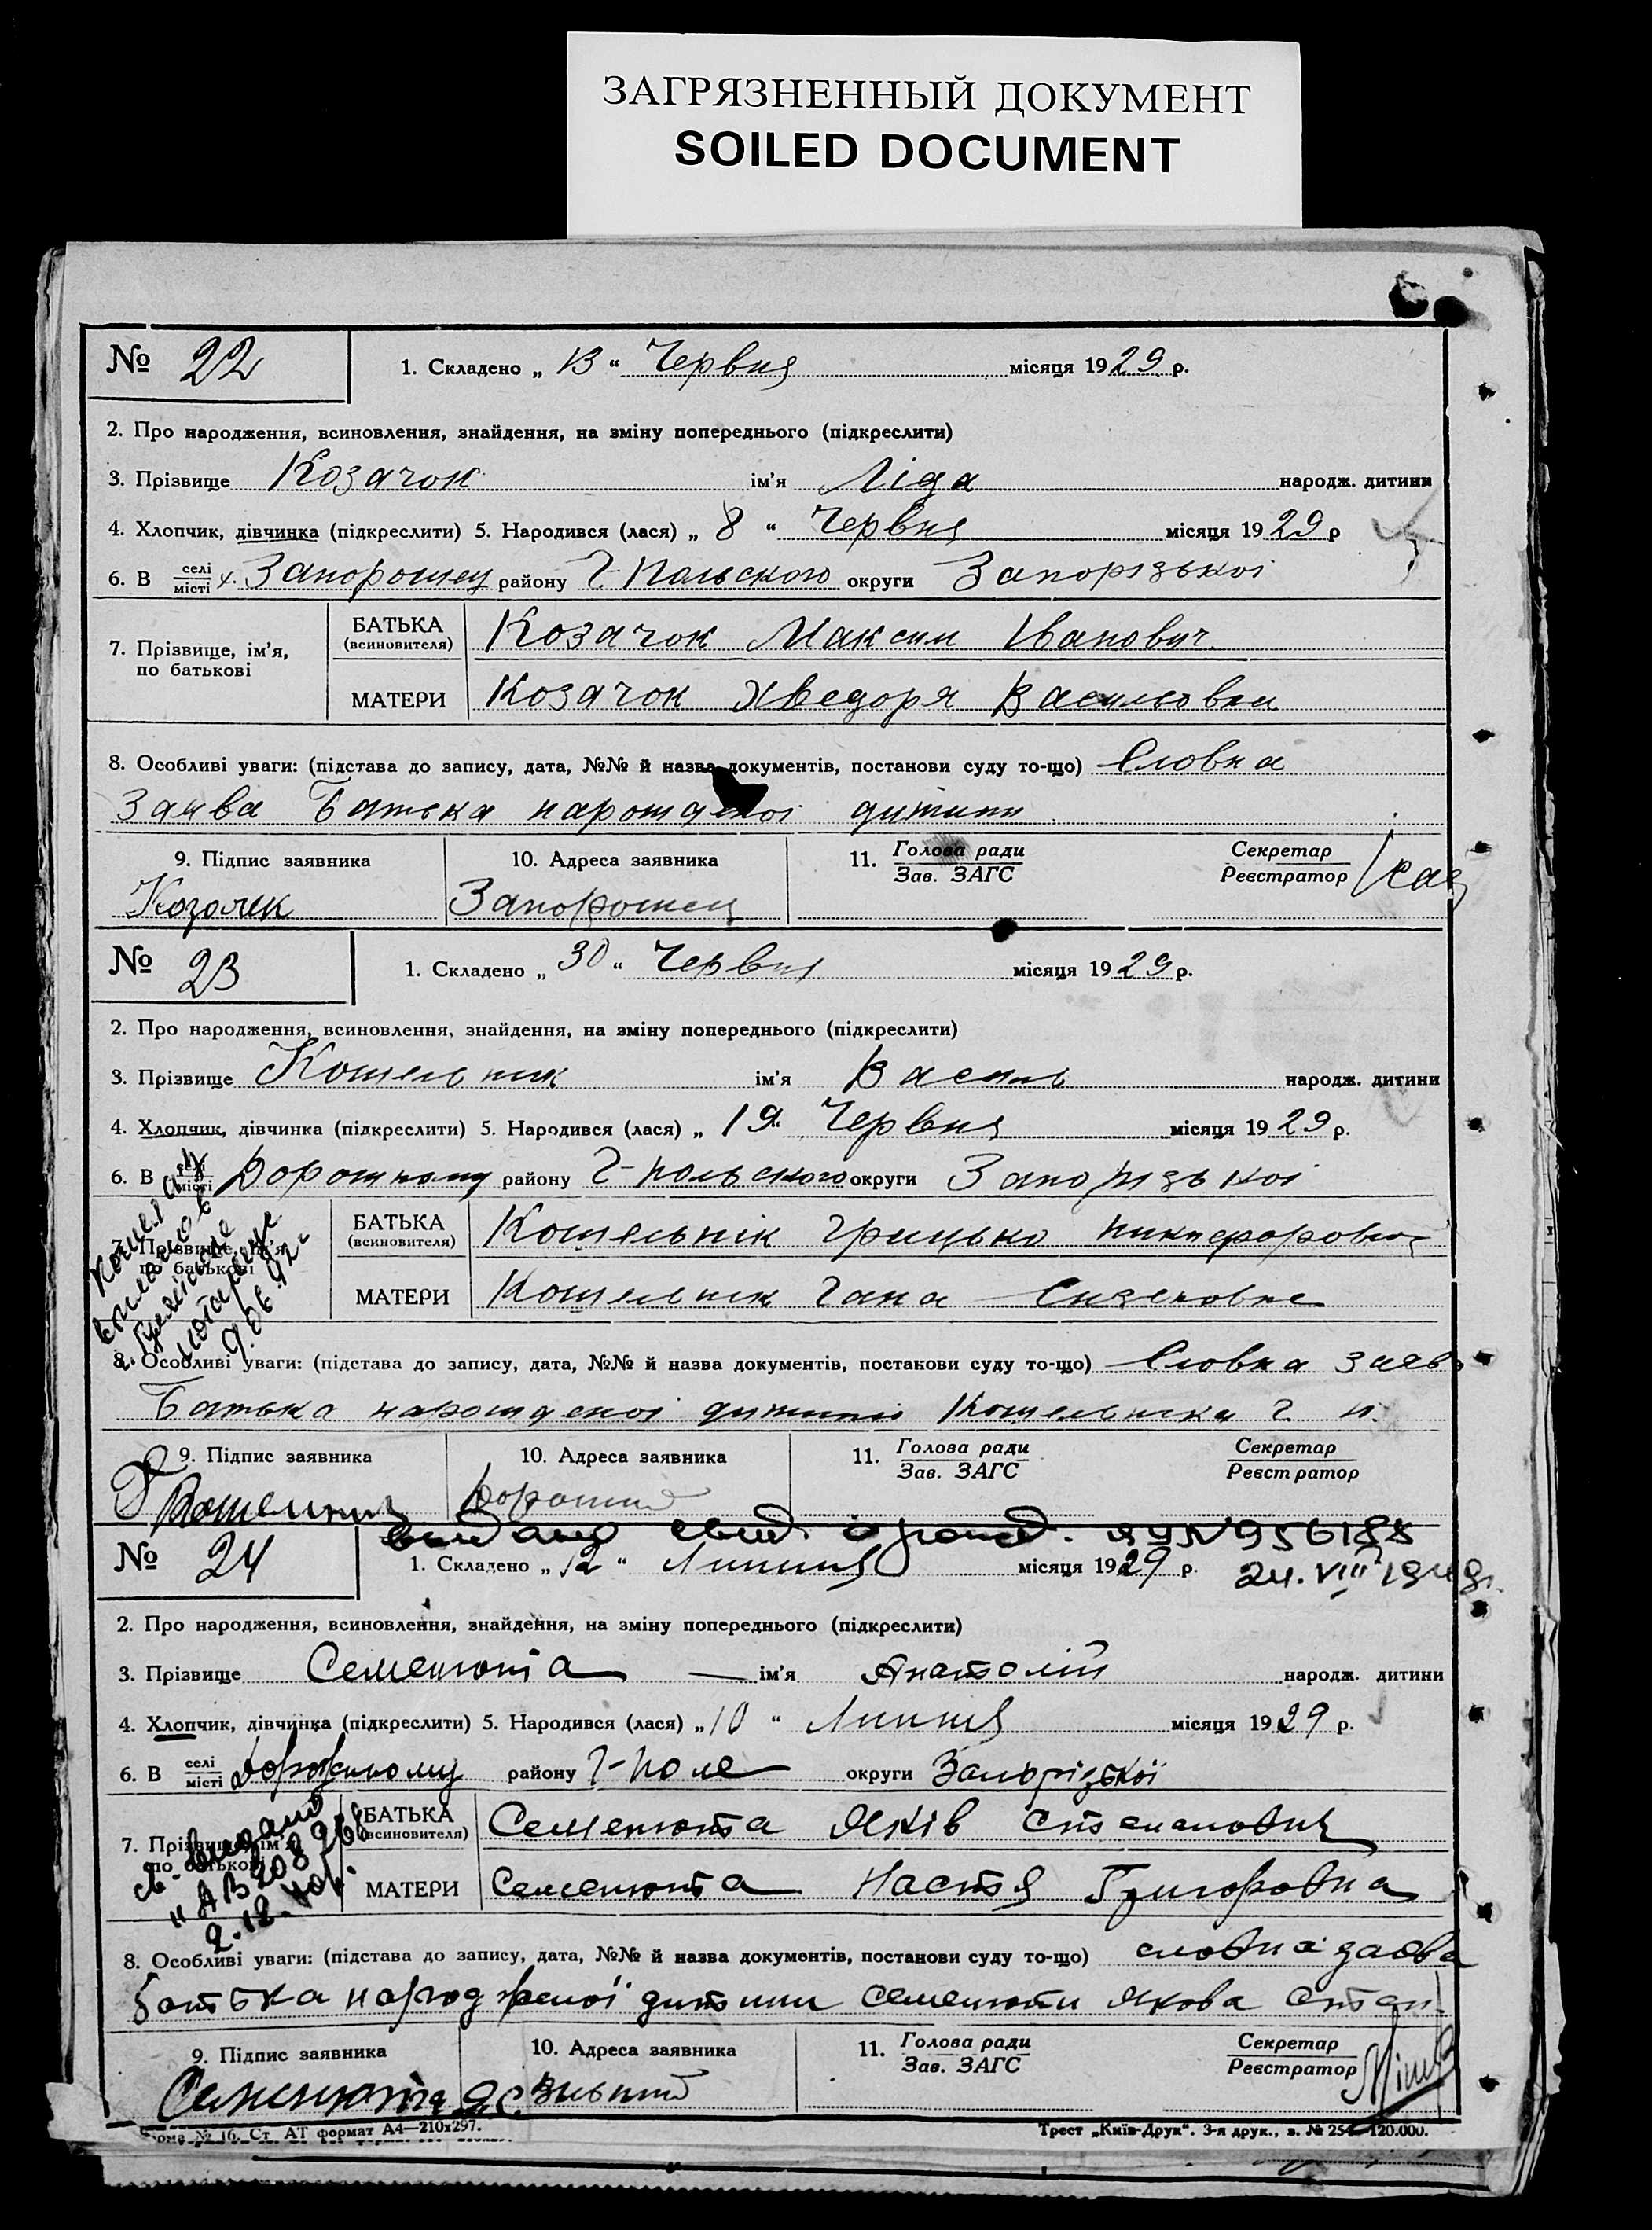 ЗАГРЯЗНЕННЫЙ ДОКУМЕНТ
SOILED DOCUMENT
№ 22
1. Складено „ 13 “ Червня місяця 1929 р.
2. Про народження, всиновлення, знайдення, на зміну попереднього (підкреслити)
3. Прізвище Козачок ім'я Ліда народж. дитини
4. Хлопчик, дівчинка (підкреслити) 5. Народився (лася) „ 8 “ Червня місяця 1929 р
6. В селі місті х. Запорошец району Г-Польского округи Запорізькоі
7. Прізвище, ім'я, по батькові
БАТЬКА (всиновителя) Козачок Максим Іванович
МАТЕРИ Козачок Хведоря Васильовна
8. Особливі уваги: (підстава до запису, дата, №№ й назва документів, постанови суду то-що) Словна
Заява Батька нарошденоі дитини
9. Підпис заявника 10. Адреса заявника 11. Голова ради Зав. ЗАГС Секретар Реєстратор
Козачек Запорошец
№ 23
1. Складено „ 30 “ Червня місяця 1929 р.
2. Про народження, всиновлення, знайдення, на зміну попереднього (підкреслити)
3. Прізвище Кошельник ім'я Василь народж. дитини
4. Хлопчик, дівчинка (підкреслити) 5. Народився (лася) „ 19 “ Червня місяця 1929 р.
6. В селі місті Дорошному району Г-Польского округи Запорізькоі
7. Прізвище, ім'я, по батькові
БАТЬКА (всиновителя) Кошельнік Грицько Никифорович
МАТЕРИ Кошельник Гана
8. Особливі уваги: (підстава до запису, дата, №№ й назва документів, постанови суду то-що) Словна заява
Батька нарошденоі дитини Кошельника Г. Н.
9. Підпис заявника 10. Адреса заявника 11. Голова ради Зав. ЗАГС Секретар Реєстратор
Г Кошельник
видано свид. о рожд. ЯУ № 956188
24. VIII 1949г.
№ 24
1. Складено „ 12 “ Липня місяця 1929 р.
2. Про народження, всиновлення, знайдення, на зміну попереднього (підкреслити)
3. Прізвище Семенюта ім'я Анатолій народж. дитини
4. Хлопчик, дівчинка (підкреслити) 5. Народився (лася) „ 10 “ Липня місяця 1929 р.
6. В селі місті Дорожному району Г-Поле округи Запорізької
7. Прізвище, ім'я, по батькові
БАТЬКА (всиновителя) Семенюта Яків Степанович
МАТЕРИ Семенюта Настя Григоровна
св. видано
АВ 208966
2.12.40р.
8. Особливі уваги: (підстава до запису, дата, №№ й назва документів, постанови суду то-що) словна заява
батька народженої дитини Семенюти Якова Степан.
9. Підпис заявника 10. Адреса заявника 11. Голова ради Зав. ЗАГС Секретар Реєстратор
Семенюта Я С.
Форма № 16. Ст. АТ формат А4—210х297.
Трест „Київ-Друк“. 3-я друк., з. № 254—120.000.